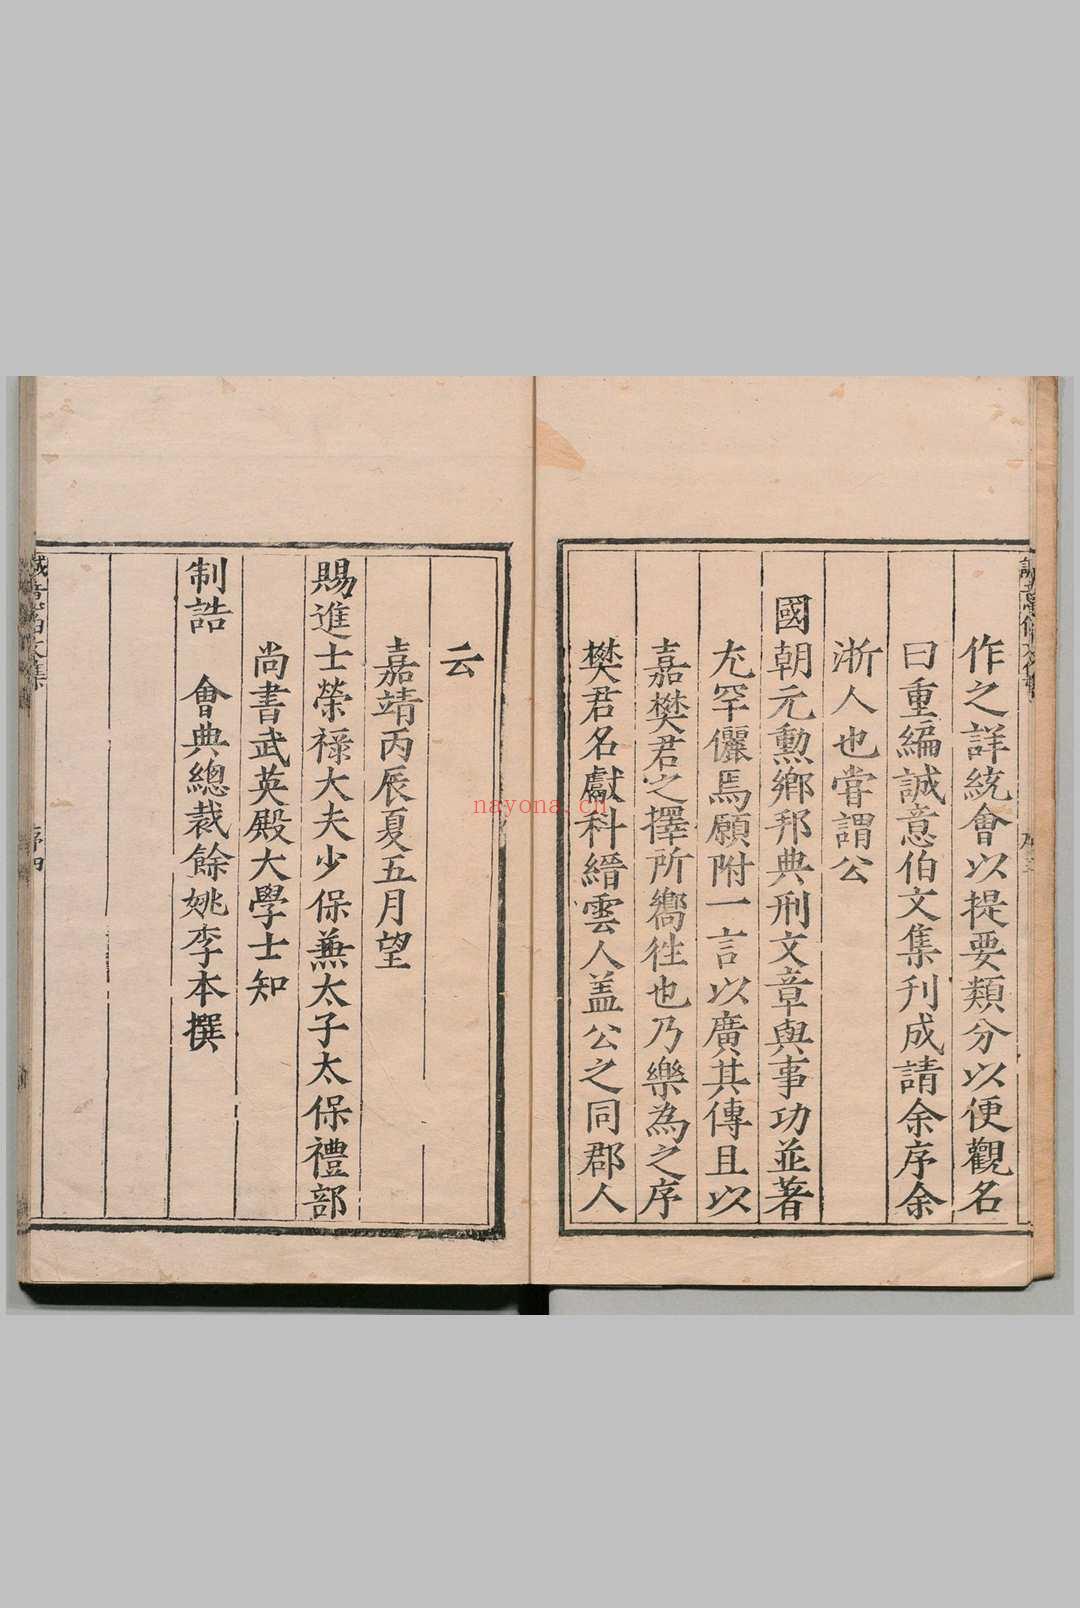 作之詳統會以提要類分以便觀名
曰重編誠意伯文集刊成請余序余
浙人也嘗謂公
國朝元勳鄉邦典刑文章與事功並著
尤罕儷焉願附一言以廣其傳且以
嘉樊君之擇所嚮徃也乃樂為之序
樊君名獻科縉雲人盖公之同郡人
云
嘉靖丙辰夏五月望
賜進士榮祿大夫少保蕪太子太保禮部
尚書武英殿大學士知
制誥　會典總裁餘姚李本撰
序四
nayona.cn